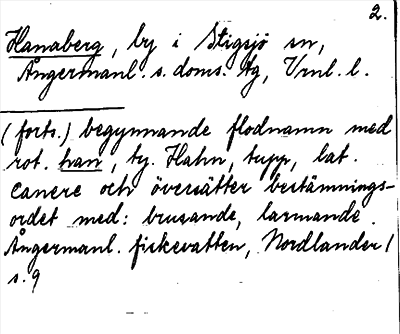 2.
Hanaberg, by i Stigsjö sn,
Ångermanl. s. doms. tg, Vrnl. l.
(forts.) begynnande flodnamn med
rot. han, ty. Hahn, tupp, lat.
canere och översätter bestämnings-
ordet med: brusande, larmande.
Ångermanl. fiskevatten, Nordlander/
s. 9